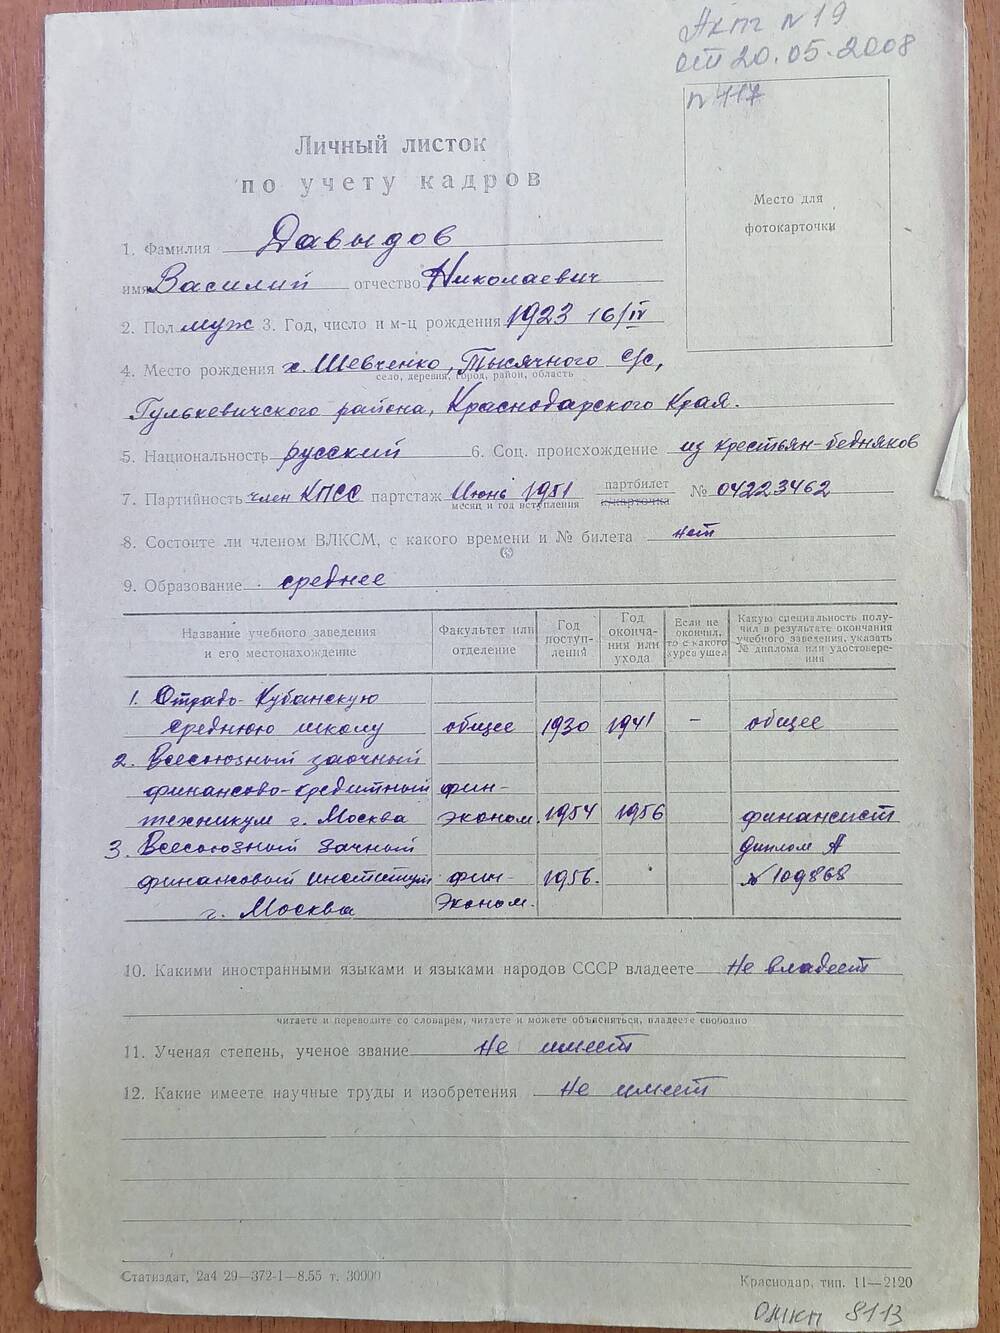 Акт N 19
от 20.05.2008
п 117
Личный листок
по учету кадров
Место для
фотокарточки
1. Фамилия Давыдов
имя Василий отчество Николаевич
2. Пол муж 3. Год, число и м-ц рождения 1923 16/IV
4. Место рождения х. Шевченко, Тысячного с/с,
село, деревня, город, район, область
Гулькевичского района, Краснодарского Края.
5. Национальность русский 6. Соц. происхождение из крестьян-бедняков
7. Партийность член КПСС партстаж Июнь 1951 партбилет № 04223462
месяц и год вступления к/карточка
8. Состоите ли членом ВЛКСМ, с какого времени и № билета нет
9. Образование среднее
Название учебного заведения и его местонахождение
Факультет или отделение
Год поступления
Год окончания или ухода
Если не окончил, то с какого курса ушел
Какую специальность получил в результате окончания учебного заведения, указать № диплома или удостоверения
1. Отрадо-Кубанскую
среднюю школу общее 1930 1941 – общее
2. Всесоюзный заочный
финансово-кредитный фин-
техникум г. Москва эконом. 1954 1956 финансист
3. Всесоюзный зачный диплом А
финансовый институт фин- 1956. № 109868
г. Москва эконом.
10. Какими иностранными языками и языками народов СССР владеете Не владеет
читаете и переводите со словарем, читаете и можете объясняться, владеете свободно
11. Ученая степень, ученое звание Не имеет
12. Какие имеете научные труды и изобретения Не имеет
Статиздат, 2а4 29—372-1—8.55 т. 30000 Краснодар, тип. 11—2120
ОМКП 8113